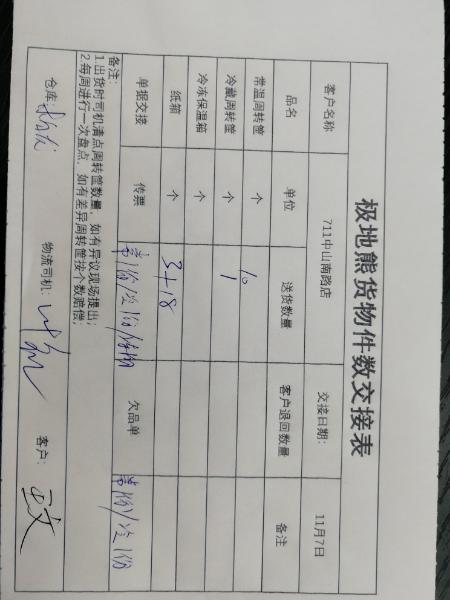 极地熊货物件数交接表
客户名称 711中山南路店 交接日期: 11月7日
品名 单位 送货数量 客户退回数量 备注
常温周转筐 个 10
冷藏周转筐 个 1
冷冻保温箱 个
纸箱 个 3+18
单据交接 传票 常1份/冷1份/ 欠品单 常1份/冷1份
备注:
1.出货时司机清点周转筐数量，如有异议现场提出;
2.每周进行一次盘点，如有差异周转筐按个数赔偿;
仓库: 物流司机: 客户: